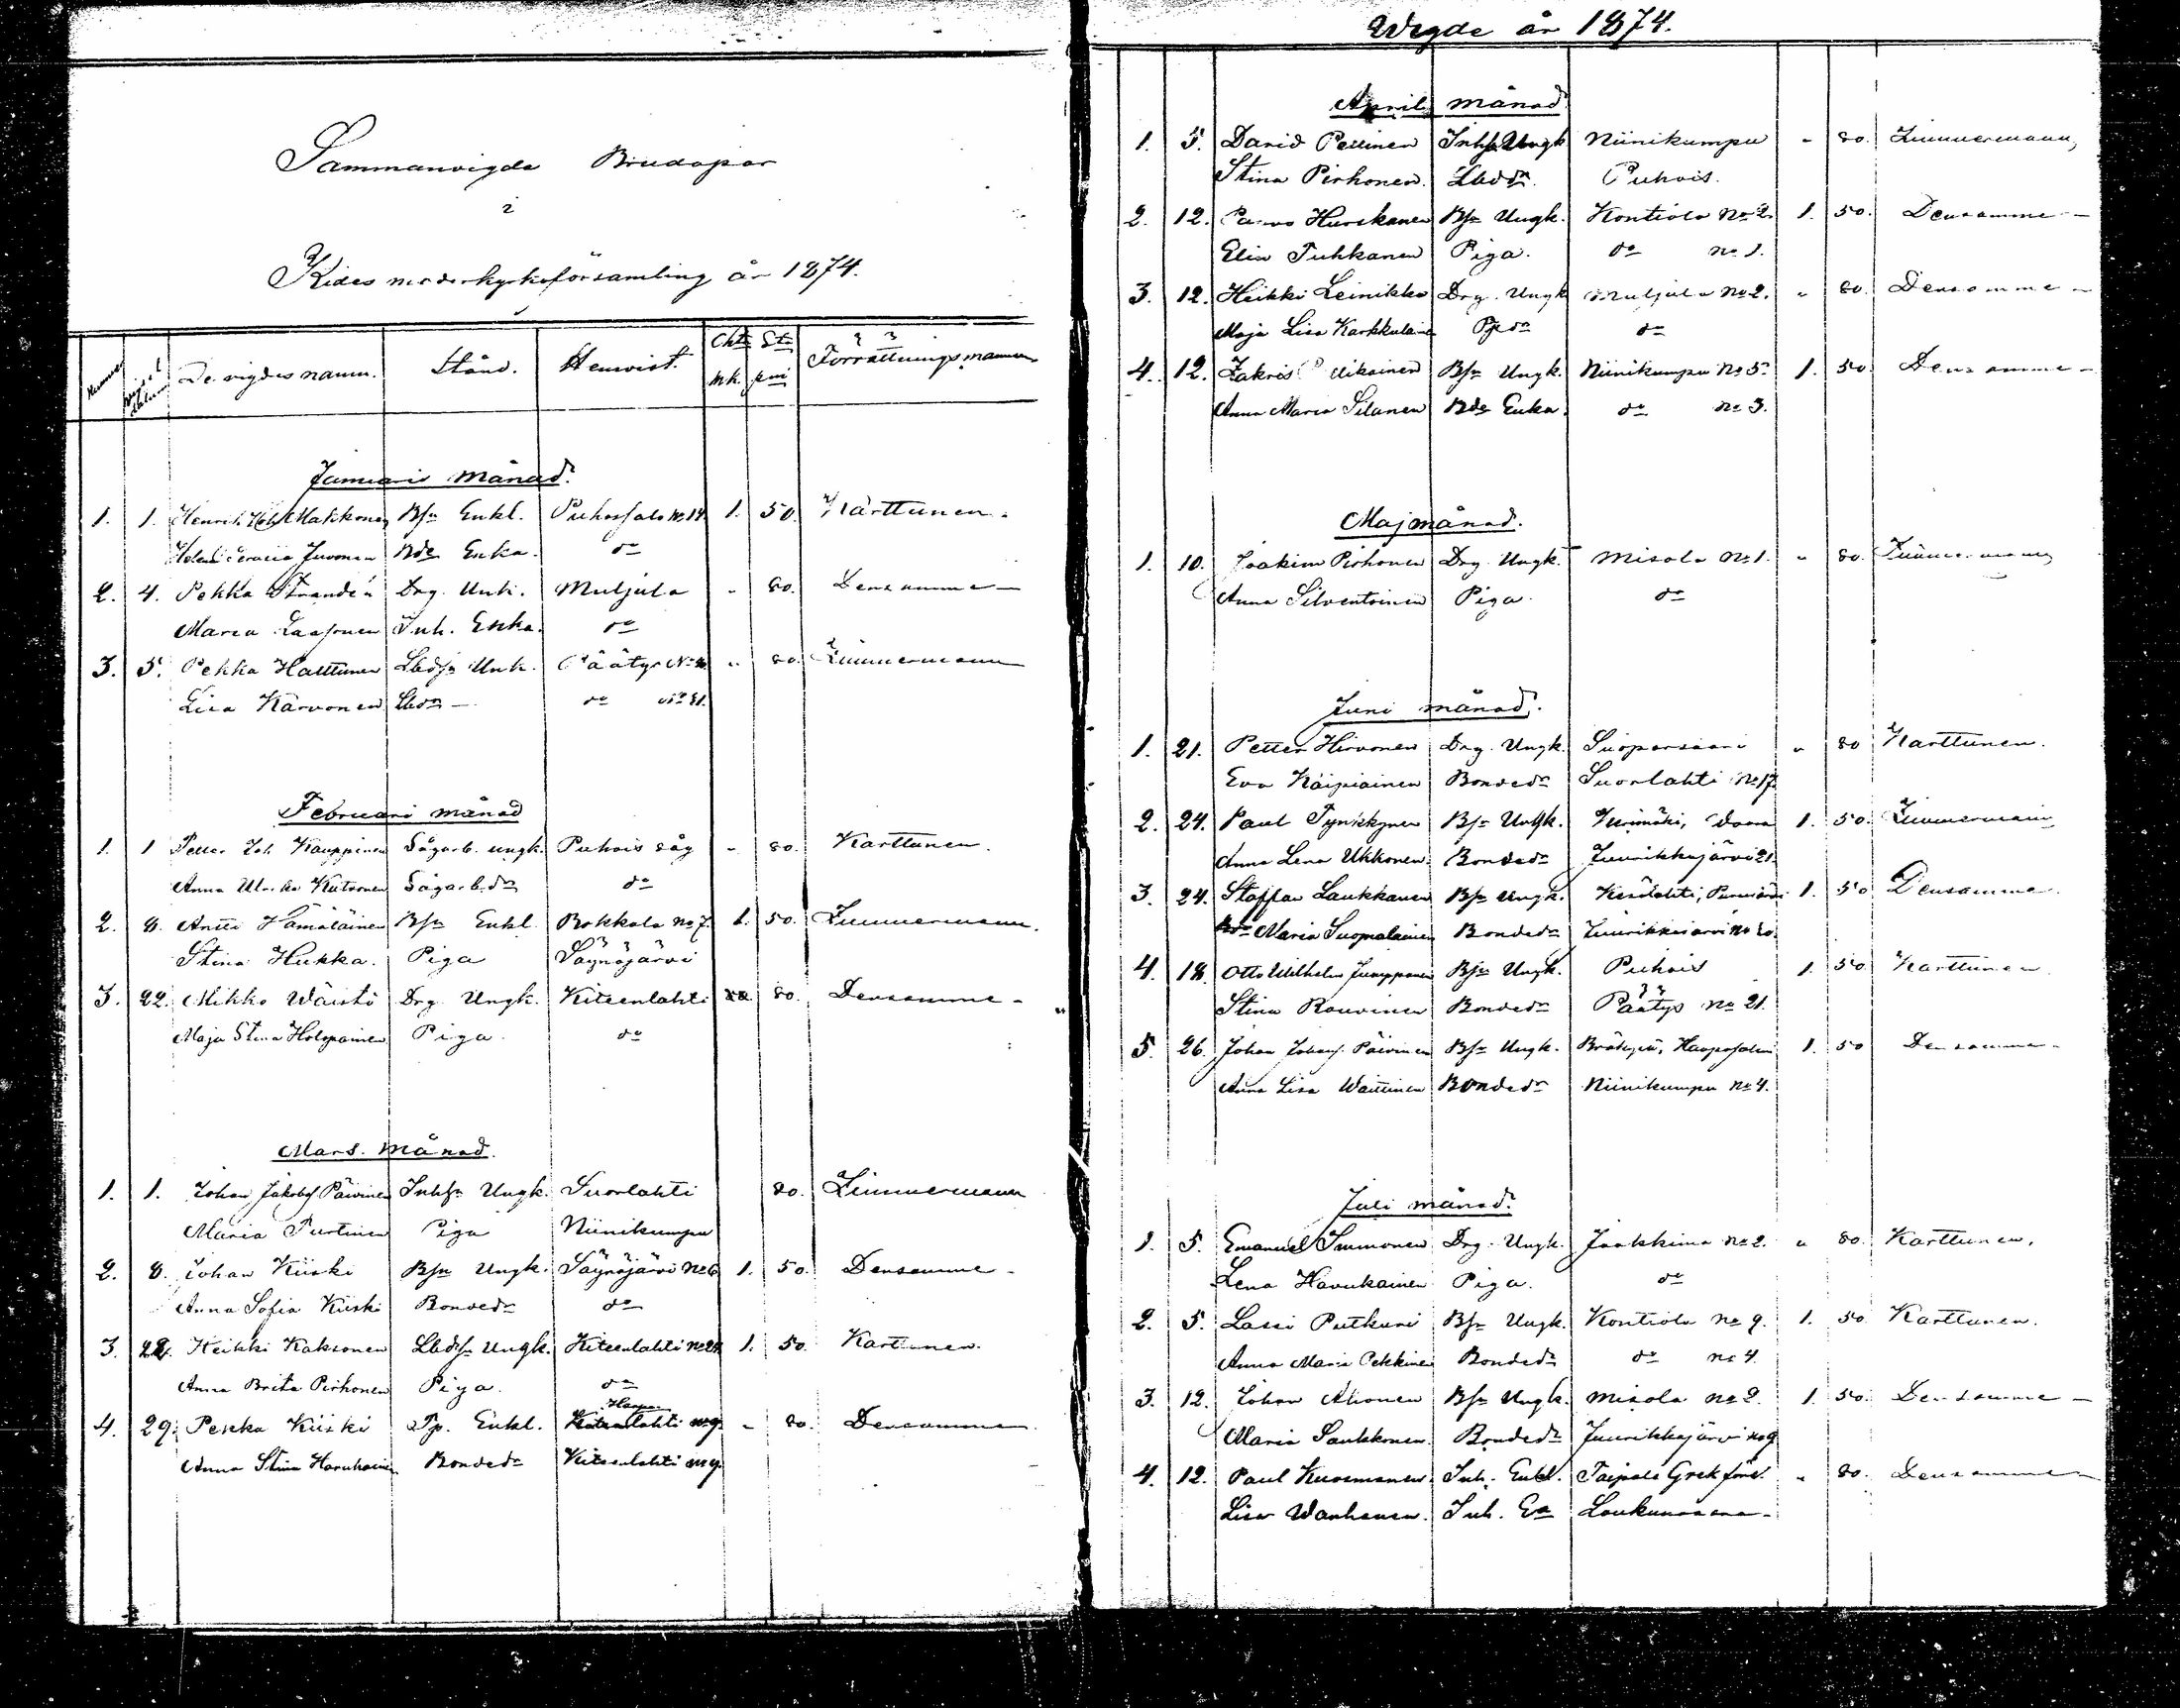 Sammanvigda Brudapar
i
Kides moderkyrkoförsamling år 1874.
Nummer De vigdas namn. Stånd. Hemvist. Chts Sts Förrättningsmannen
mk. pni
Januarii månad.
1. 1. Henrik Makkonen Bfr Enkl. Puhossalo No 14. 1. 50. Karttunen.
Helena Juvonen Bde Enka. do
2. 4. Pekka Strandén Drg. Unk. Muljula - 80. Densamme -
Maria Laasonen Inh. Enka. do
3. 5. Pekka Halttunen Lbdfr Unk. Päätys No " 80. Zimmermann
Lisa Karvonen Lbdr - do No 21.
Februari månad
1. 1 Petter Joh. Kauppinen Sågarb. ungk. Puhois såg - 80. Karttunen.
Anna Ulrika Kutvonen Sågarb.dr do
2. 8. Antti Hämäläinen Bfr Enkl. Rokkala No 7. 1. 50. Zimmermann.
Stina Hukka. Piga Säynäjärvi
3. 22. Mikko Wäistö Drg. Ungk. Kiteenlahti 80. Densamme -
Maja Stina Holopainen Piga. do
Mars. månad.
1. 1. Johan Jakobsf Päivinen Inhfr Ungk. Suorlahti 80. Zimmermann
Maria Turtinen Piga Niinikumpu
2. 8. Johan Kiiski Bfr Ungk. Säynäjärvi No 6 1. 50. Densamme -
Anna Sofia Kiiski Bondedr do
3. 22. Heikki Kaksonen Lbdfr Ungk. Kiteenlahti No 24 1. 50. Karttunen.
Anna Brita Pirhonen Piga. do
4. 29. Pekka Kiiski Tp. Enkl. Kiteenlahti No 9. - 80. Densamme
Anna Stina Havukainen Bondedr Kiteenlahti No 9.
Wigde år 1874.
April månad
1. 5. David Pellinen Inhfr Ungk Niinikumpu - 80. Zimmermann,
Stina Pirhonen. Lbddr. Puhois.
2. 12. Paavo Hurskanen Bfr Ungk. Kontiola No 2. 1. 50. Densamme -
Elin Tuhkanen Piga. do No 1.
3. 12. Heikki Leinikka Drg. Ungk Muljula No 2. " 80. Densamme -
Maja Lisa Karkkulainen Pgdr do
4. 12. Zakris Bfr Ungk. Niinikumpu No 5. 1. 50 Densamme -
Anna Maria Silanen Bde Enka. do No 3.
Maj månad.
1. 10. Joakim Pirhonen Drg. Ungk. Misola No 1. " 80. Zimmermann
Anna Silventoinen Piga. do
Juni månad.
1. 21. Petter Hirvonen Drg. Ungk. Suoparsaari " 80 Karttunen.
Eva Käipiäinen Bondedr Suorlahti No 17.
2. 24. Paul Tynkkynen Bfr Ungk. 1. 50. Zimmermann
Anna Lena Ukkonen. Bondedr Juurikkajärvi 21.
3. 24. Staffan Laukkanen Bfr Ungk. Kesälahti, 1. 50 Densamme.
Maria Suomalainen Bondedr Juurikkajärvi No 20.
4. 18. Otto Wilhelm Jumppanen Bfr Ungk. Puhois 1. 50 Karttunen
Stina Rouvinen Bondedr Päätys No 21.
5. 26. Johan Johansf. Päivinen Bfr Ungk. 1. 50 Densamme -
Anna Lisa Waittinen Bondedr Niinikumpu No 4.
Juli månad.
1. 5. Emanuel Immonen Drg. Ungk. Jaakkima No 2. " 80. Karttunen.
Lena Havukainen Piga. do
2. 5. Lassi Putkuri Bfr Ungk. Kontiola No 9. 1. 50 Karttunen.
Anna Maria Pekkinen Bondedr do No 4.
3. 12. Johan Ahonen Bfr Ungk. Misola No 2. 1. 50. Densamme -
Maria Saukkonen. Bondedr Juurikkajärvi No 9
4. 12. Paul Kuosmanen. Inh. Enkl. Taipale Grek förs. " 80. Densamme -
Lisa Wanhanen. Inh. Ea